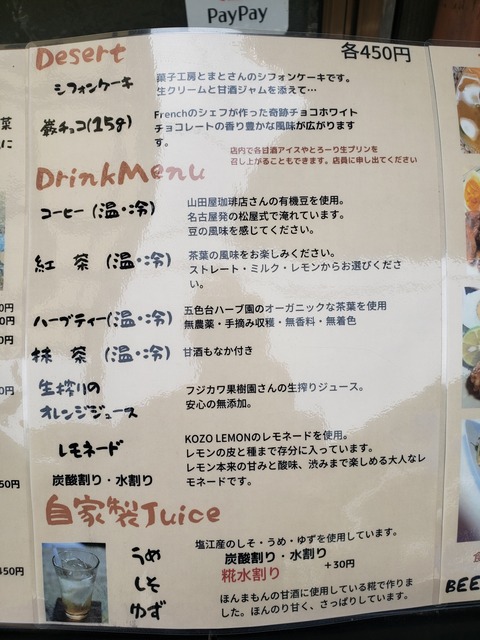 PayPay
Desert
各450円
シフォンケーキ
菓子工房とまとさんのシフォンケーキです。
生クリームと甘酒ジャムを添えて…
蔵チョコ(15g)
Frenchのシェフが作った奇跡チョコホワイト
チョコレートの香り豊かな風味が広がりま
す。
店内で各甘酒アイスやとろーり生プリンを
召し上がることもできます。店員に申し出てください
DrinkMenu
コーヒー(温・冷)
山田屋珈琲店さんの有機豆を使用。
名古屋発の松屋式で淹れています。
豆の風味を感じてください。
紅 茶 (温・冷)
茶葉の風味をお楽しみください。
ストレート・ミルク・レモンからお選びくださ
い。
ハーブティー(温・冷)
五色台ハーブ園のオーガニックな茶葉を使用
無農薬・手摘み収穫・無香料・無着色
抹 茶 (温・冷)
甘酒もなか付き
生搾りの
オレンジジュース
フジカワ果樹園さんの生搾りジュース。
安心の無添加。
レモネード
炭酸割り・水割り
KOZO LEMONのレモネードを使用。
レモンの皮と種まで存分に入っています。
レモン本来の甘みと酸味、渋みまで楽しめる大人なレ
モネードです。
自家製Juice
うめ
しそ
ゆず
塩江産のしそ・うめ・ゆずを使用しています。
炭酸割り・水割り
糀水割り
+30円
ほんまもんの甘酒に使用している糀で作りま
した。ほんのり甘く、さっぱりしています。